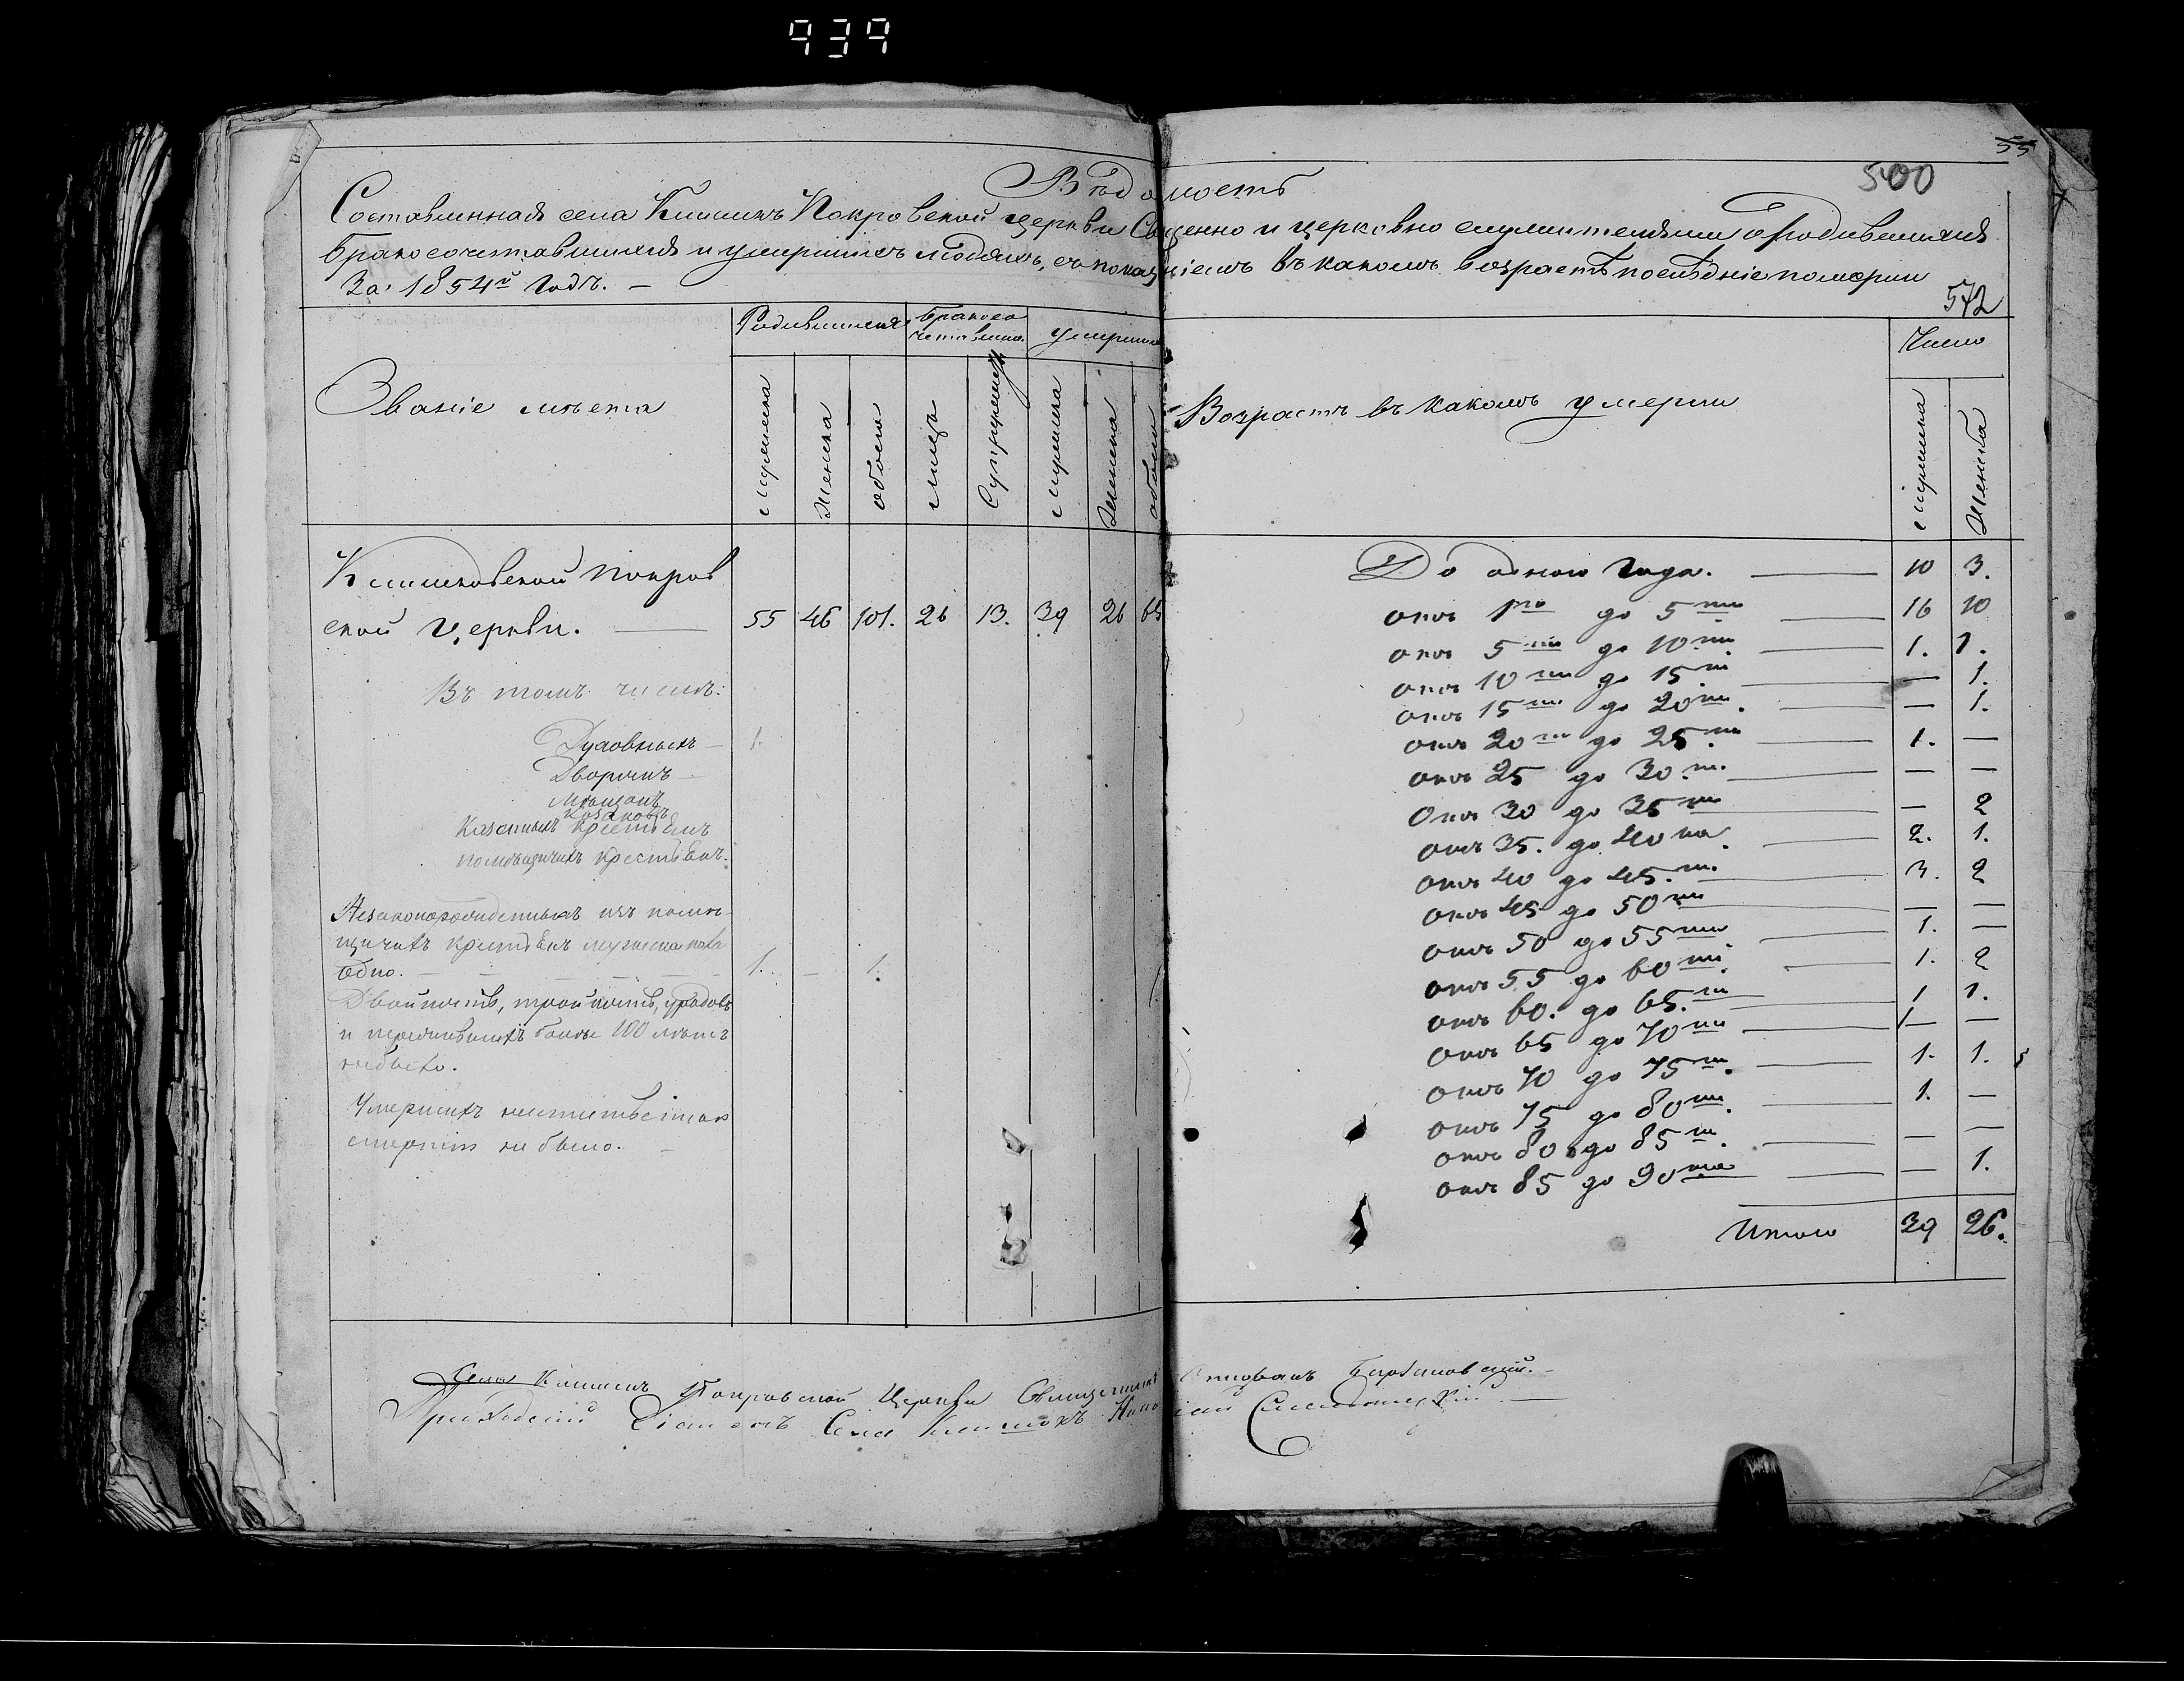 939
55
500
Вѣдомость
Составленная села Клишокъ Покровской церкви Священно и церковно служителями о родившихся
бракосочетавшихся и умершихъ людяхъ, съ показаніемъ въ какомъ возрастѣ послѣдніе померли
За 1854й годъ. —
572
Званіе мѣста
Родившихся
бракосо
четавших.
умерших
мужеска
Женска
обоего
лицъ
Супружествъ
мужеска
Женска
обоего
Возрастъ въ какомъ умерли
Число
мужеска
Женска
Клишковской покров
ской Церкви. — 55 46 101. 26 13. 39 26 65
Въ томъ числѣ:
Духовныхъ — 1.
Дворянъ —
Мѣщанъ
Козаковъ
Казенныхъ крестьянъ
помѣщичихъ крестьянъ.
Незаконорожденныхъ изъ помѣ-
щичихъ крестьянъ мужеска пола
Одно. — 1. — 1.
Двойностъ, тройностъ, уродовъ
и пережившихъ болѣе 100 лѣтъ
небыло.
Умершихъ неестественною
смертію не было. —
До одного года. — 10 3.
отъ 1го до 5ти — 16 10
отъ 5ти до 10ти — 1. 1.
отъ 10ти до 15ти — — 1.
отъ 15ти до 20ти. — — 1.
отъ 20ти до 25ти — 1. —
отъ 25 до 30ти. — — —
Отъ 30 до 35ти — — 2
отъ 35. до 40ка. — 2. 1.
отъ 40 до 45.ти — 3. 2
отъ 45 до 50ти — — —
отъ 50 до 55ти — 1. —
отъ 55 до 60ти. — 1. 2
отъ 60. до 65.ти — 1 1.
отъ 65 до 70ти — 1 —
отъ 70 до 75ти. — 1. 1.
отъ 75 до 80ти. — 1. —
отъ 80 до 85ти. — — —
отъ 85 до 90та — — 1.
Итого 39 26.
Села Клишокъ Покровской Церкви Священникъ
Приходскій Діаконъ Села Клишокъ